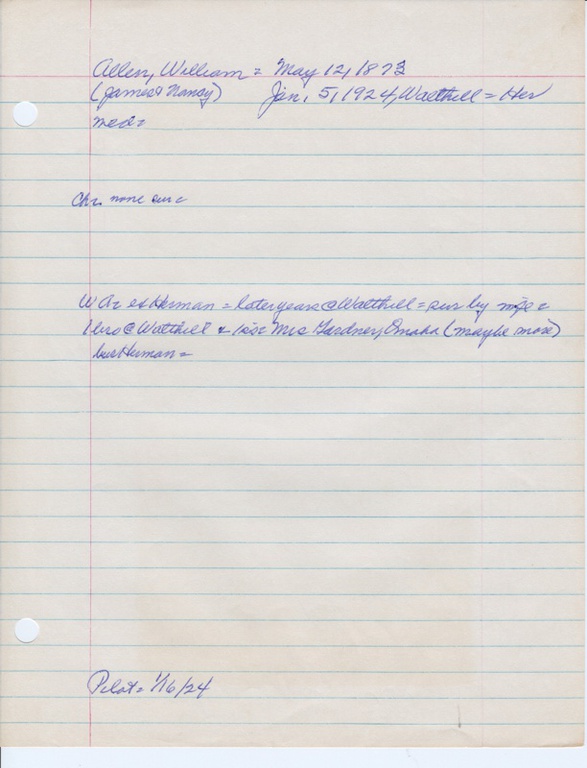 Allen, William = May 12, 1873
(James & Nancy) Jan, 5, 1924, Walthill = Her
med =
Chr. none sur =
Herman = later years @ Walthill = sur by wife =
1 bro @ Walthill & 1 sis Mrs Gardner, Omaha (maybe more)
bur Herman =
Pilot = 1/16/24